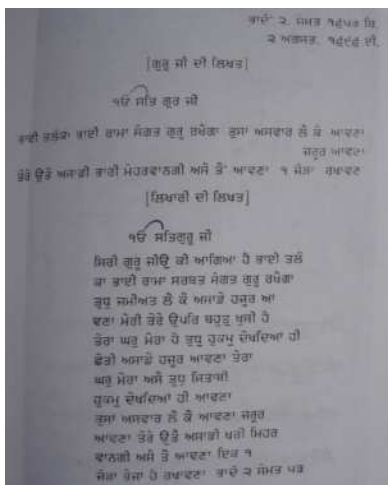 ਭਾਦੋਂ ੨. ਸੰਮਤ ੧੭੫੩ ਬਿ.
੨ ਅਗਸਤ. ੧੬੯੬ ਈ.
[ਗੁਰੂ ਜੀ ਦੀ ਲਿਖਤ]
ੴ ਸਤਿ ਗੁਰ ਜੀ
ਭਾਈ ਤਲੋਕਾ ਭਾਈ ਰਾਮਾ ਸੰਗਤ ਗੁਰੂ ਰਖੈਗਾ ਤੁਸਾ ਅਸਵਾਰ ਲੈ ਕੇ ਆਵਣਾ
ਜਰੂਰ ਆਵਣਾ
ਤੇਰੇ ਉਤੇ ਅਸਾਡੀ ਭਾਰੀ ਮੇਹਰਵਾਨਗੀ ਅਸੈ ਤੈਂ ਆਵਣਾ ੧ ਜੋੜਾ ਰਖਾਵਣ
[ਲਿਖਾਰੀ ਦੀ ਲਿਖਤ]
ੴ ਸਤਿਗੁਰੂ ਜੀ
ਸਿਰੀ ਗੁਰੂ ਜੀਉ ਕੀ ਆਗਿਆ ਹੈ ਭਾਈ ਤਲੋ
ਕਾ ਭਾਈ ਰਾਮਾ ਸਰਬਤ ਸੰਗਤ ਗੁਰੂ ਰਖੈਗਾ
ਤੁਧੁ ਜਮੀਅਤ ਲੈ ਕੇ ਅਸਾਡੇ ਹਜੂਰ ਆ
ਵਣਾ ਮੇਰੀ ਤੇਰੇ ਉਪਰਿ ਬਹੁਤੁ ਖੁਸੀ ਹੈ
ਤੇਰਾ ਘਰੁ ਮੇਰਾ ਹੈ ਤੁਧੁ ਹੁਕਮੁ ਦੇਖਦਿਆ ਹੀ
ਛੇਤੀ ਅਸਾਡੇ ਹਜੂਰ ਆਵਣਾ ਤੇਰਾ
ਘਰੁ ਮੇਰਾ ਅਸੈ ਤੁਧੁ ਸਿਤਾਬੀ
ਹੁਕਮੁ ਦੇਖਦਿਆਂ ਹੀ ਆਵਣਾ
ਤੁਸਾ ਅਸਵਾਰ ਲੈ ਕੇ ਆਵਣਾ ਜਰੂਰ
ਆਵਣਾ ਤੇਰੇ ਉਤੈ ਅਸਾਡੀ ਖਰੀ ਮਿਹਰ
ਵਾਨਗੀ ਅਸੈ ਤੈ ਆਵਣਾ ਇਕ ੧
ਜੋੜਾ ਭੇਜਾ ਹੈ ਰਖਾਵਣਾ ਭਾਦੋ ੨ ਸੰਮਤ ੫੩